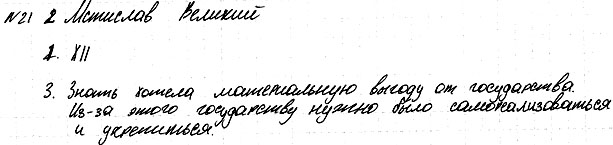 №21 2 Мстислав Великий
1. XII
3. Знать хотела материальную выгоду от государства.
Из-за этого государству нужно было
и укрепиться.